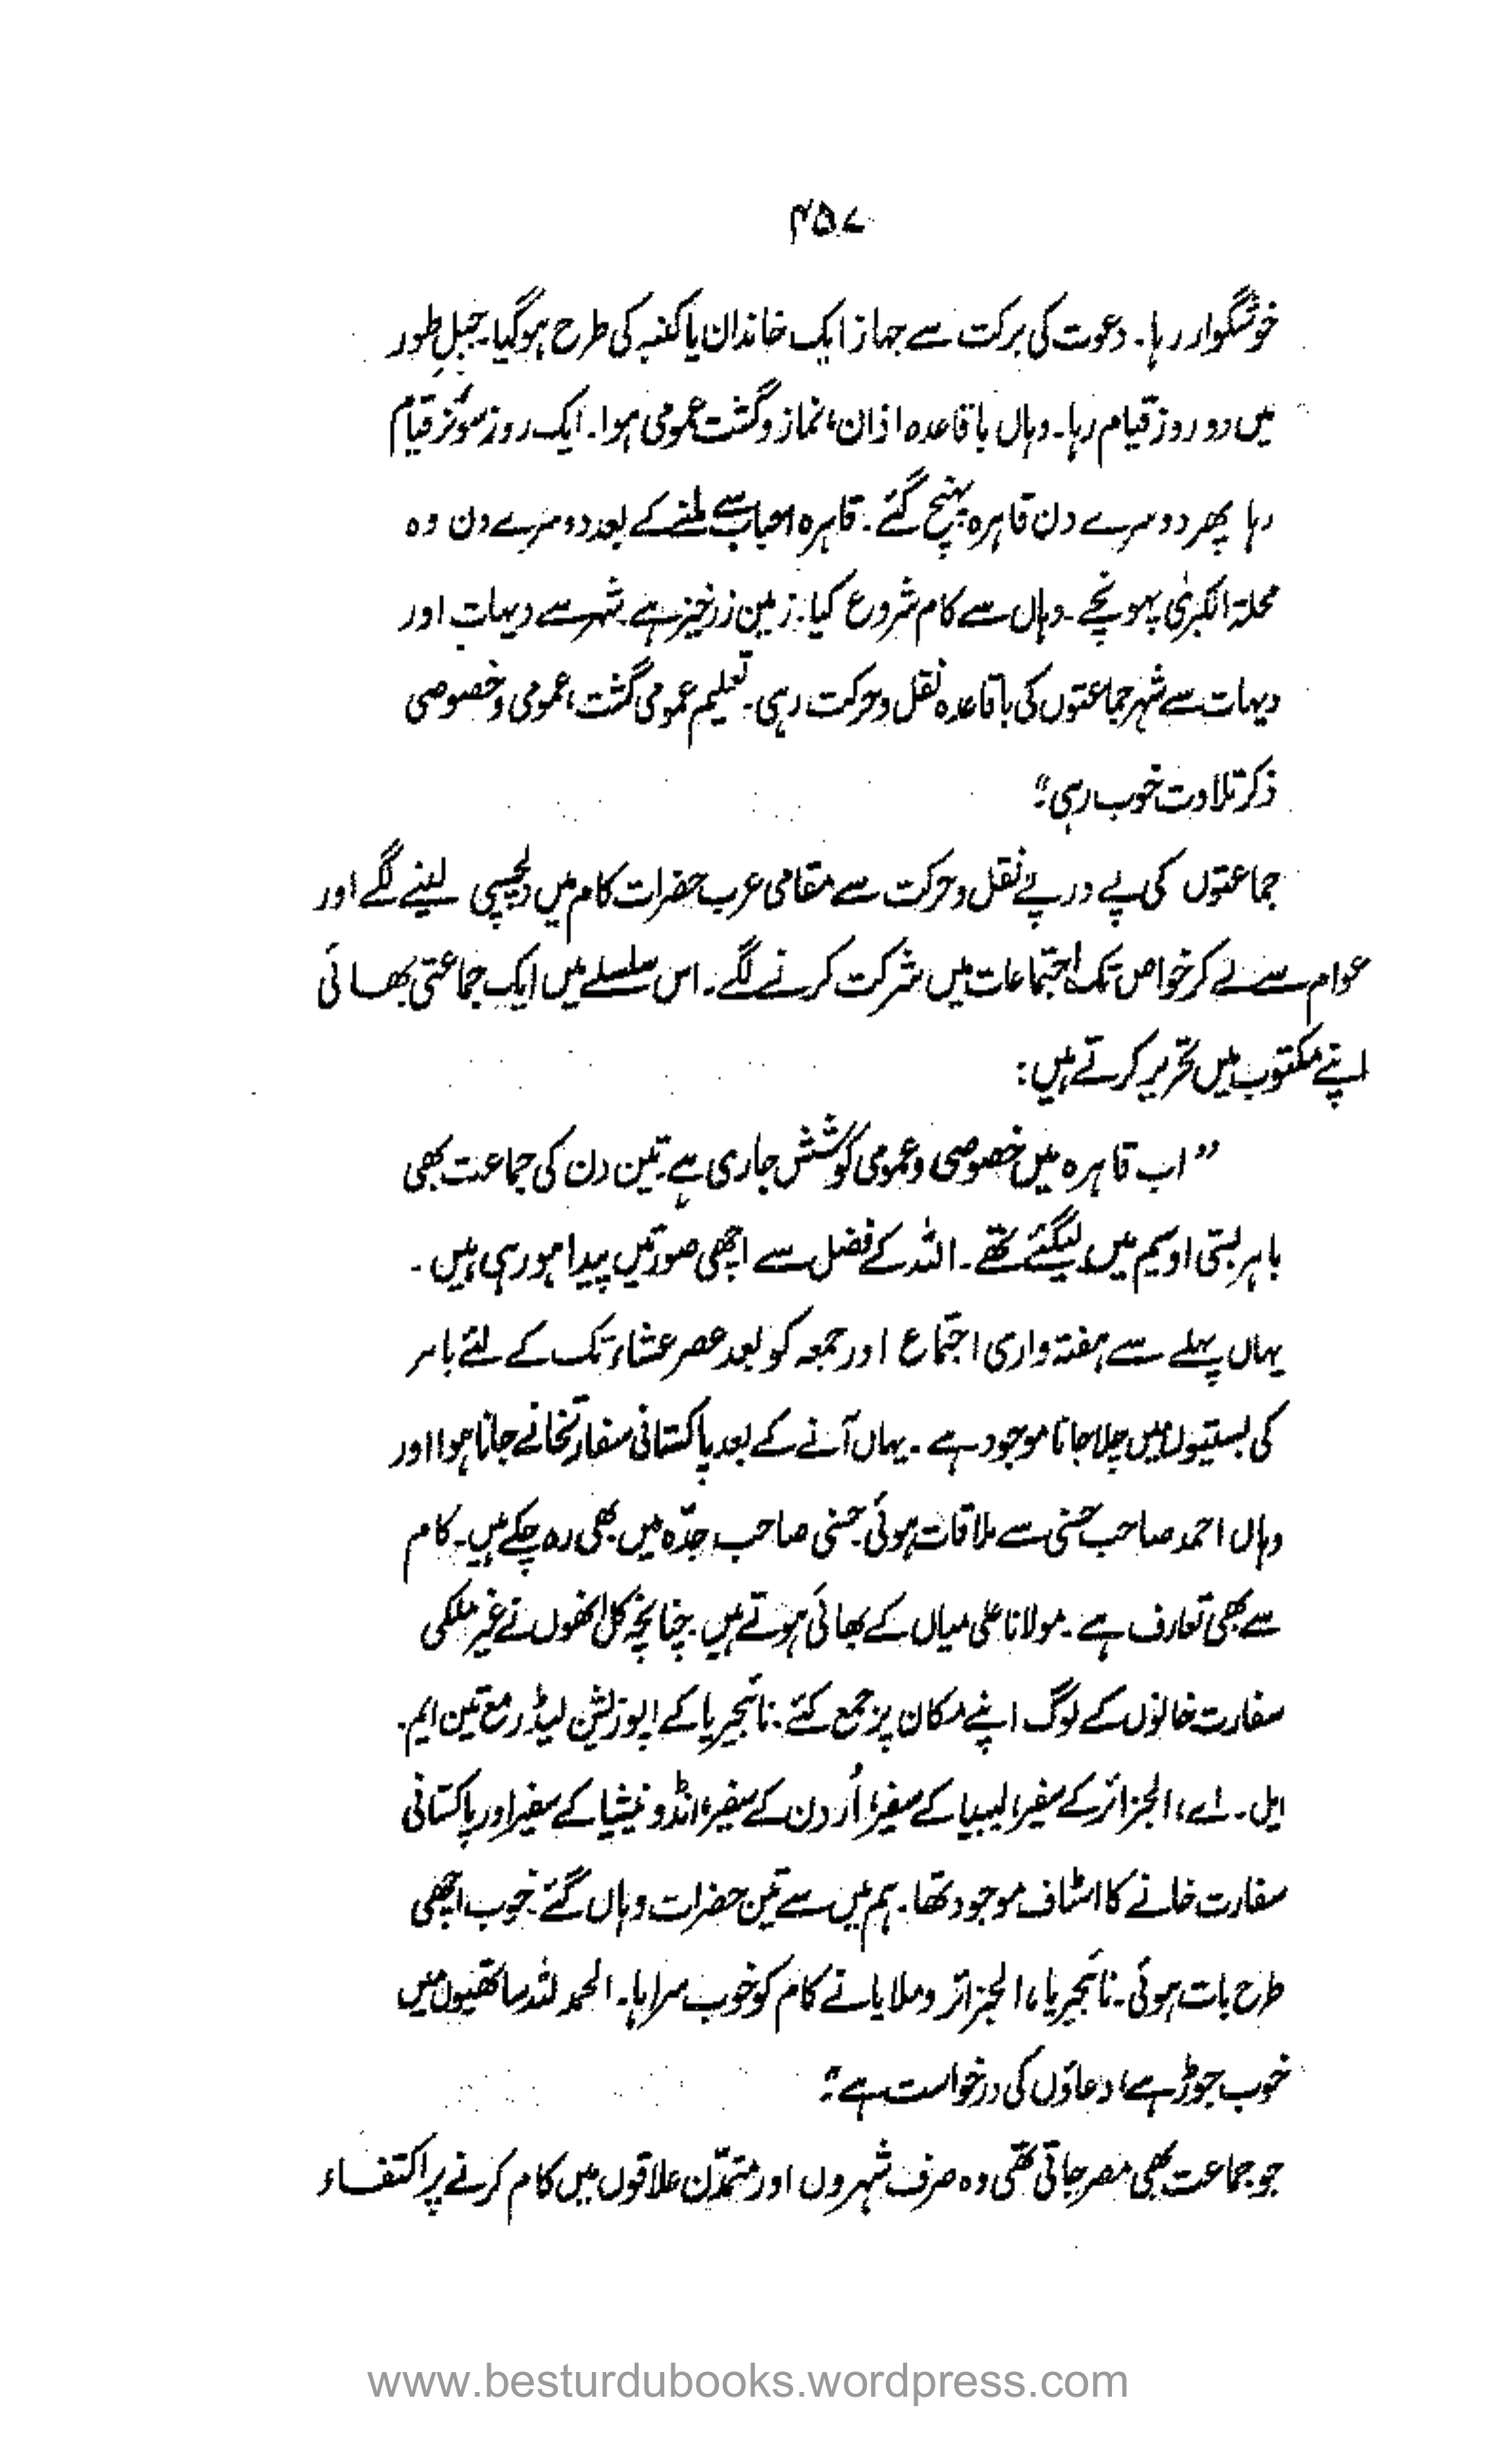 ۴۵۷
خوشگوار رہا۔ دعوت کی برکت سے جہاز ایک خاندان یا کنبہ کی طرح ہوگیا۔ جبلِ طور
میں دو روز قیام رہا۔ وہاں باقاعدہ اذان، نماز و گشت عمومی ہوا۔ ایک روز سوئز قیام
رہا پھر دوسرے دن قاہرہ پہنچ گئے۔ قاہرہ احباب سے ملنے کے بعد دوسرے دن وہ
محلۃ الکبریٰ پہونچے۔ وہاں سے کام شروع کیا۔ زمین زرخیز ہے۔ شہر سے دیہات اور
دیہات سے شہر جماعتوں کی باقاعدہ نقل و حرکت رہی۔ تعلیم عمومی گشت، عمومی و خصوصی
ذکر تلاوت خوب رہی؛"
جماعتوں کی پے در پے نقل و حرکت سے مقامی عرب حضرات کام میں دلچسپی لینے لگے اور
عوام سے لے کر خواص تک اجتماعات میں شرکت کرنے لگے۔ اس سلسلے میں ایک جماعتی بھائی
اپنے مکتوب میں تحریر کرتے ہیں:
"اب قاہرہ میں خصوصی و عمومی کوشش جاری ہے۔ تین دن کی جماعت بھی
باہر بستی اوسیم میں لیگئے تھے۔ اللہ کے فضل سے اچھی صورتیں پیدا ہو رہی ہیں۔
یہاں پہلے سے ہفتہ واری اجتماع اور جمعہ کو بعد عصر عشاء تک کے لئے باہر
کی بستیوں میں چلا جانا موجود ہے۔ یہاں آنے کے بعد پاکستانی سفارتخانے جانا ہوا اور
وہاں احمد صاحب حسنی سے ملاقات ہوئی۔ حسنی صاحب جدّہ میں بھی رہ چکے ہیں۔ کام
سے بھی تعارف ہے۔ مولانا علی میاں کے بھائی ہوتے ہیں۔ چنانچہ کل انھوں نے غیر ملکی
سفارت خانوں کے لوگ اپنے مکان پر جمع کئے۔ نائیجیریا کے اپوزیشن لیڈر مع تین ایم۔
ایل۔ اے، الجزائر کے سفیر، لیبیا کے سفیر، اُردن کے سفیر، انڈونیشیا کے سفیر اور پاکستانی
سفارت خانے کا اسٹاف موجود تھا۔ ہم میں سے تین حضرات وہاں گئے۔ خوب اچھی
طرح بات ہوئی۔ نائیجیریا، الجزائر و ملایا نے کام کو خوب سراہا۔ الحمد للہ ساتھیوں میں
خوب جوڑ ہے، دعاؤں کی درخواست ہے؛"
جو جماعت بھی مصر جاتی تھی وہ صرف شہروں اور متمدّن علاقوں میں کام کرنے پر اکتفاء
www.besturdubooks.wordpress.com